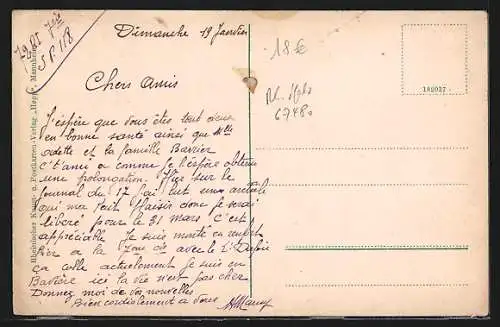 Dimanche 19 Janvier
Chers Amis
J'espère que vous êtes tout deux
en bonne santé ainsi que Mlle
Odette et la famille Bavier
C't'ami a comme je l'espère obtenu
une prolongation. Hier sur le
journal du 17 j'ai lut une article
qui ma fait plaisir donc je serai
liberé pour le 31 mars c'est
appréciable je suis monté en renfort
hier a la avec le
ça colle actuelement je suis en
Bavière ici la vie n'est pas cher
Donnez moi de vos nouvelles
Bien cordialement a vous
18 €
6748
189027
Rheinischer Kunst- u. Postkarten-Verlag „Hepp“, Mannheim